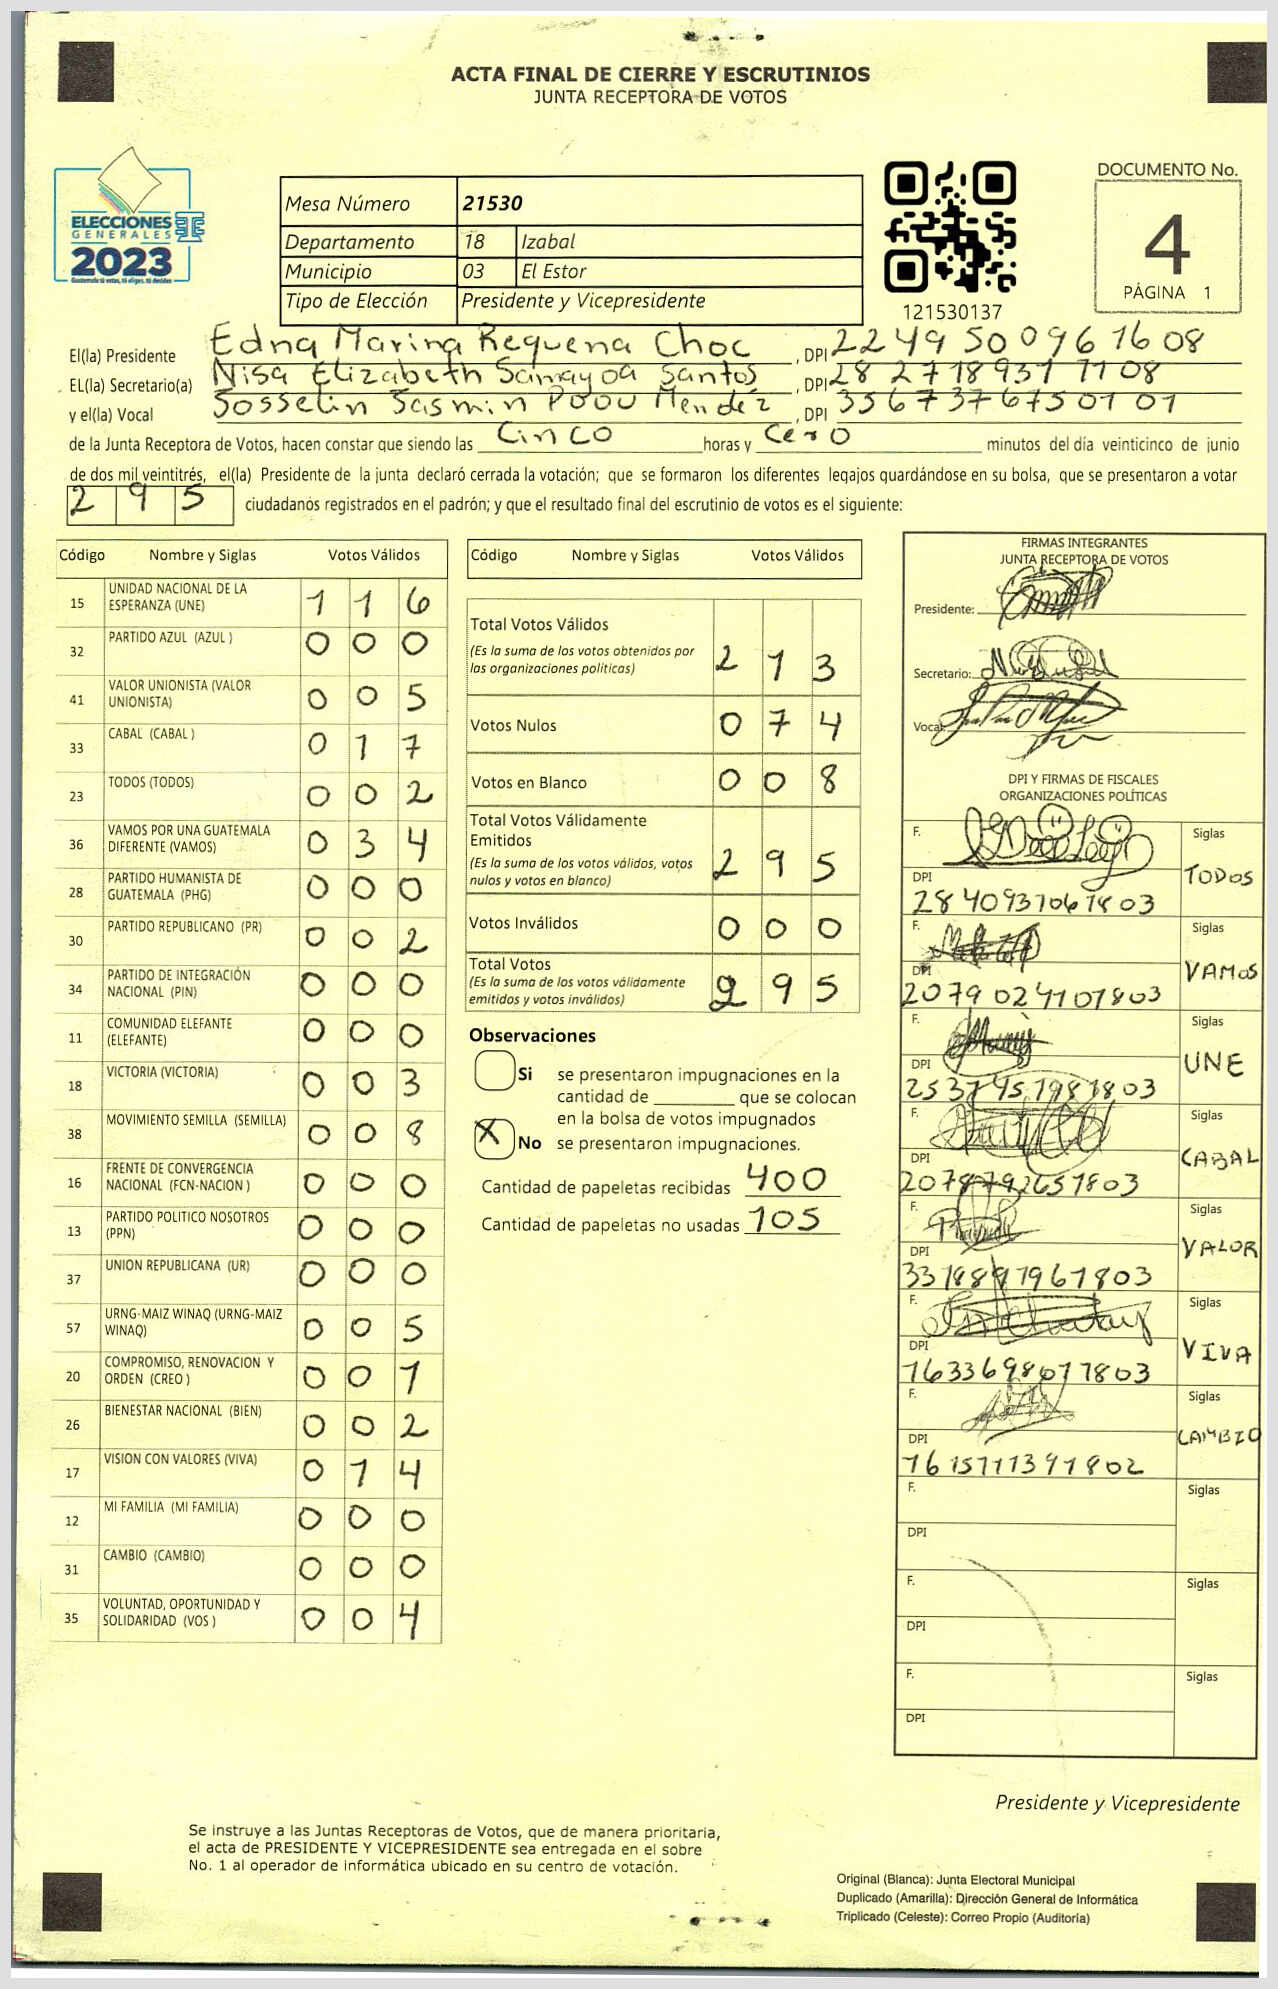 ACTA FINAL DE CIERRE Y ESCRUTINIOS
JUNTA RECEPTORA DE VOTOS
ELECCIONES
GENERALES
2023
Guatemala tú votas, tú eliges, tú decides
Mesa Número 21530
Departamento 18 Izabal
Municipio 03 El Estor
Tipo de Elección Presidente y Vicepresidente
121530137
DOCUMENTO No.
4
PÁGINA 1
El(la) Presidente Edna Marina Requena Choc, DPI 2249500961608
EL(la) Secretario(a) Nisa Elizabeth Samayoa Santos, DPI 2827189311108
y el(la) Vocal Sosselin Sasmin Poou Mendéz, DPI 3567376750101
de la Junta Receptora de Votos, hacen constar que siendo las Cinco horas y Cero minutos del día veinticinco de junio
de dos mil veintitrés, el(la) Presidente de la junta declaró cerrada la votación; que se formaron los diferentes legajos quardándose en su bolsa, que se presentaron a votar
295 ciudadanos registrados en el padrón; y que el resultado final del escrutinio de votos es el siguiente:
Código Nombre y Siglas Votos Válidos
15 UNIDAD NACIONAL DE LA ESPERANZA (UNE) 116
32 PARTIDO AZUL (AZUL ) 000
41 VALOR UNIONISTA (VALOR UNIONISTA) 005
33 CABAL (CABAL ) 017
23 TODOS (TODOS) 002
36 VAMOS POR UNA GUATEMALA DIFERENTE (VAMOS) 034
28 PARTIDO HUMANISTA DE GUATEMALA (PHG) 000
30 PARTIDO REPUBLICANO (PR) 002
34 PARTIDO DE INTEGRACIÓN NACIONAL (PIN) 000
11 COMUNIDAD ELEFANTE (ELEFANTE) 000
18 VICTORIA (VICTORIA) 003
38 MOVIMIENTO SEMILLA (SEMILLA) 008
16 FRENTE DE CONVERGENCIA NACIONAL (FCN-NACION ) 000
13 PARTIDO POLITICO NOSOTROS (PPN) 000
37 UNION REPUBLICANA (UR) 000
57 URNG-MAIZ WINAQ (URNG-MAIZ WINAQ) 005
20 COMPROMISO, RENOVACION Y ORDEN (CREO ) 001
26 BIENESTAR NACIONAL (BIEN) 002
17 VISION CON VALORES (VIVA) 014
12 MI FAMILIA (MI FAMILIA) 000
31 CAMBIO (CAMBIO) 000
35 VOLUNTAD, OPORTUNIDAD Y SOLIDARIDAD (VOS ) 004
Código Nombre y Siglas Votos Válidos
Total Votos Válidos 213
(Es la suma de los votos obtenidos por
las organizaciones políticas)
Votos Nulos 074
Votos en Blanco 008
Total Votos Válidamente
Emitidos 295
(Es la suma de los votos válidos, votos
nulos y votos en blanco)
Votos Inválidos 000
Total Votos 295
(Es la suma de los votos válidamente
emitidos y votos inválidos)
Observaciones
Si se presentaron impugnaciones en la
cantidad de ________ que se colocan
en la bolsa de votos impugnados
X No se presentaron impugnaciones.
Cantidad de papeletas recibidas 400
Cantidad de papeletas no usadas 105
FIRMAS INTEGRANTES
JUNTA RECEPTORA DE VOTOS
Presidente:
Secretario:
Vocal:
DPI Y FIRMAS DE FISCALES
ORGANIZACIONES POLÍTICAS
F. Siglas TODOS
DPI 2840937061803
F. Siglas VAMOS
DPI 2079024101803
F. Siglas UNE
DPI 2537451981803
F. Siglas CABAL
DPI 2078792651803
F. Siglas VALOR
DPI 3318897961803
F. Siglas VIVA
DPI 1633698071803
F. Siglas CAMBIO
DPI 1615711391802
F. Siglas
DPI
F. Siglas
DPI
F. Siglas
DPI
Presidente y Vicepresidente
Se instruye a las Juntas Receptoras de Votos, que de manera prioritaria,
el acta de PRESIDENTE Y VICEPRESIDENTE sea entregada en el sobre
No. 1 al operador de informática ubicado en su centro de votación.
Original (Blanca): Junta Electoral Municipal
Duplicado (Amarilla): Dirección General de Informática
Triplicado (Celeste): Correo Propio (Auditoría)